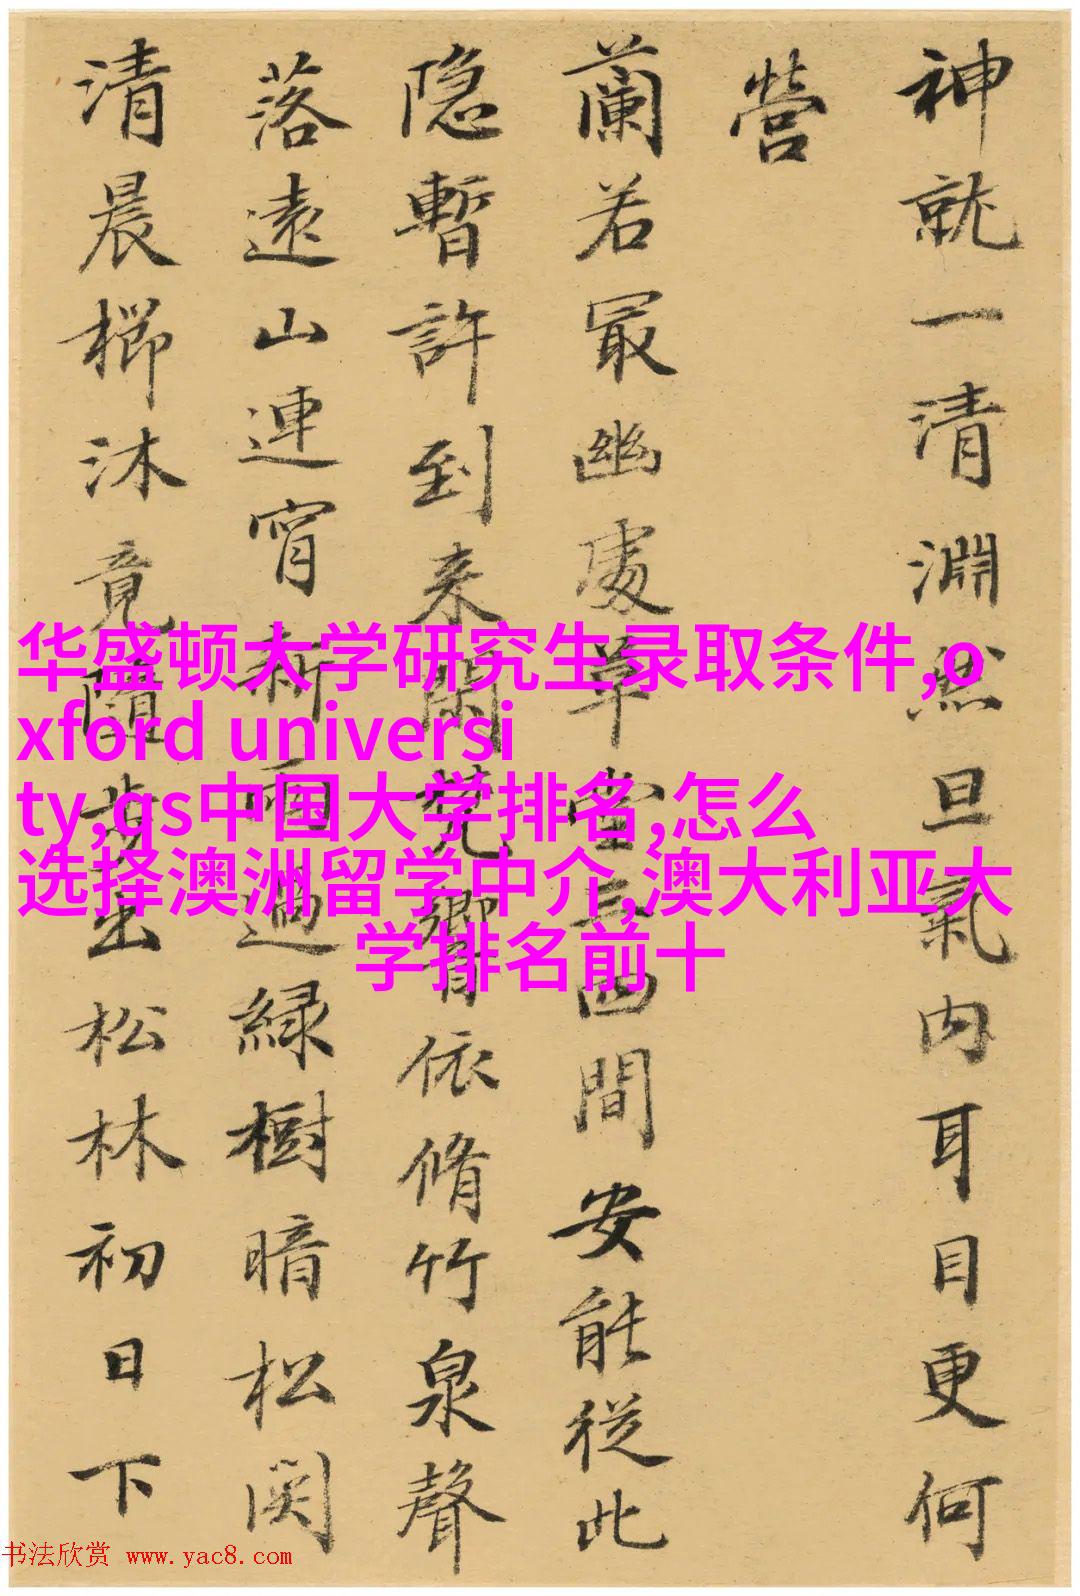 神就一清淵然旦氣内耳目更何
營
蘭若冣幽處草堂四間安能從此
隐暫許到来閑梵響依脩竹泉聲
落遠山連宵新雨過緑樹暗松関
清晨櫛沐竟隨步出松林初日下
华盛顿大学研究生录取条件,o
xford universi
ty,qs中国大学排名,怎么
选择澳洲留学中介,澳大利亚大
学排名前十
书法欣赏 www.yac8.com